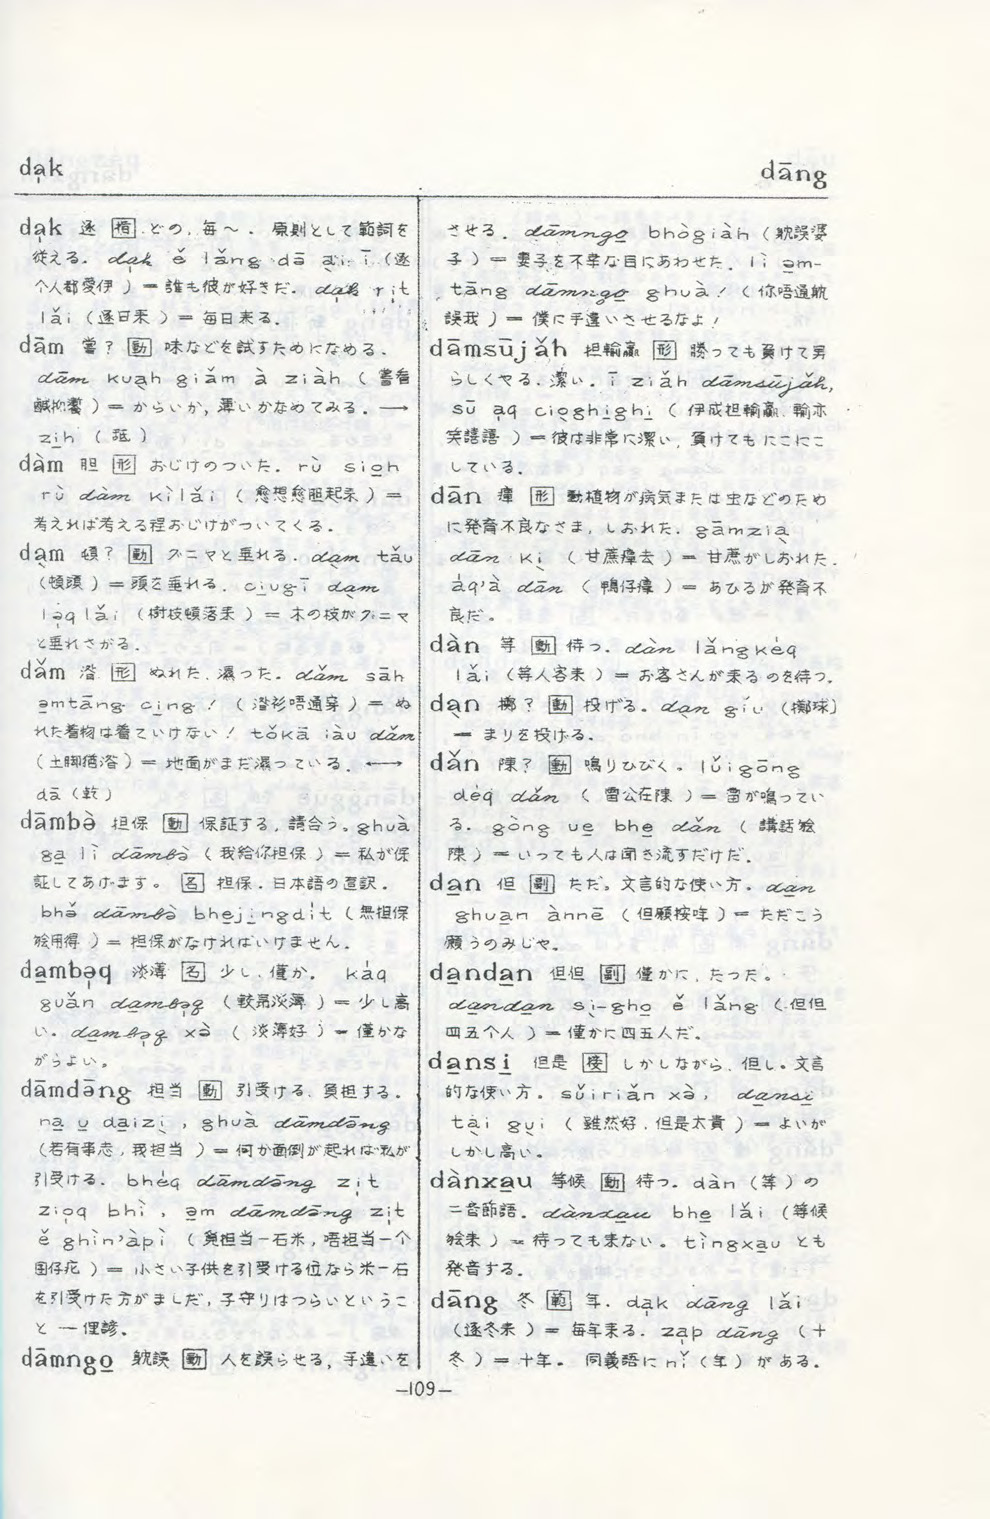 da̩k
dāng
da̩k 逐 指 どの, 毎～. 原則として範詞を
従える. da̩k ě lǎng dā a̩i ī (逐
个人都愛伊) = 誰も彼が好きだ. da̩k ri̍t
lǎi (逐日来) = 毎日来る.
dām 嘗? 動 味などを試すためになめる.
dām kua̩h giǎm à ziàh (嘗看
鹹抑饗) = からいか, 薄いかなめてみる. →
zi̱h (舐)
dàm 胆 形 おじけのついた. rù sio̱h
rù dàm kìlǎi (愈想愈胆起来) =
考えれば考える程おじけがついてくる.
da̩m 頓? 動 グニャと垂れる. da̩m tǎu
(頓頭) = 頭を垂れる. ciu̱gī da̩m
lə̍qlǎi (樹枝頓落来) = 木の枝がグニャ
と垂れさがる.
dǎm 澹 形 ぬれた. 濕った. dǎm sāh
ə̱mtāng ci̱ng! (澹衫唔通穿) = ぬ
れた着物は着ていけない! tǒkā iàu dǎm
(土脚猶澹) = 地面がまだ濕っている. ←→
dā (乾)
dāmbə̀ 担保 動 保証する, 請合う。ghuà
ga̱ lì dāmbə̀ (我給你担保) = 私が保
証してあげます。 名 担保. 日本語の直訳.
bhə̌ dāmbə̀ bhe̱ji̱ngdi̍t (無担保
𣍐用得) = 担保がなければいけません.
da̱mbə̍q 淡薄 名 少し. 僅か. káq
guǎn da̱mbə̍q (較昂淡薄) = 少し高
い. da̱mbə̍q xə̀ (淡薄好) = 僅かな
がらよい。
dāmdə̄ng 担当 動 引受ける, 負担する.
na̱ u̱ da̱izi̩, ghuà dāmdə̄ng
(若有事志, 我担当) = 何か面倒が起れば私が
引受ける. bhéq dāmdə̄ng zi̍t
zio̍q bhì, ə̱m dāmdə̄ng zi̍t
ě ghìn'àpì (覓担当一石米, 唔担当一个
囝仔疕) = 小さい子供を引受ける位なら米一石
を引受けた方がましだ, 子守りはつらいというこ
と — 俚諺.
dāmngo̱ 耽誤 動 人を誤らせる, 手違いを
させる. dāmngo̱ bhògiàh (耽誤婆
子) = 妻子を不幸な目にあわせた. lì ə̱m-
tāng dāmngo̱ ghuà! (你唔通耽
誤我) = 僕に手違いさせるなよ!
dāmsūjǎh 担輸贏 形 勝っても負けて男
らしくやる. 潔い. ī ziǎh dāmsūjǎh,
sū a̩q cio̩ghi̱ghi̱ (伊成担輸贏, 輸亦
笑譆譆) = 彼は非常に潔い, 負けてもにこにこ
している.
dān 癉 形 動植物が病気または虫などのため
に発育不良なさま, しおれた. gāmzia̩
dān ki̩ (甘蔗癉去) = 甘蔗がしおれた.
áq'à dān (鴨仔癉) = あひるが発育不
良だ。
dàn 等 動 待つ. dàn lǎngkéq
lǎi (等人客来) = お客さんが来るのを待つ.
da̩n 擲? 動 投げる。da̩n giǔ (擲球)
= まりを投げる.
dǎn 陳? 動 鳴りひびく。lǔigōng
déq dǎn (雷公在陳) = 雷が鳴ってい
る. gòng ue̱ bhe̱ dǎn (講話𣍐
陳) = いっても人は聞き流すだけだ.
da̱n 但 副 ただ。文言的な使い方. da̱n
ghua̱n ànnē (但願按哖) = ただこう
願うのみじゃ.
da̱nda̱n 但但 副 僅かに, たった。
da̱nda̱n si̩-gho̱ ě lǎng (但但
四五个人) = 僅かに四五人だ.
da̱nsi̱ 但是 接 しかしながら, 但し. 文言
的な使い方. sǔiriǎn xə̀, da̱nsi̱
ta̩i gu̩i (雖然好, 但是太貴) = よいが
しかし高い.
dànxa̱u 等候 動 待つ. dàn (等) の
二音節語. dànxa̱u bhe̱ lǎi (等候
𣍐来) = 待っても来ない. tìngxa̱u とも
発音する.
dāng 冬 範 年. da̩k dāng lǎi
(逐冬来) = 毎年来る. za̍p dāng (十
冬) = 十年. 同義語に nǐ (年) がある.
—109—